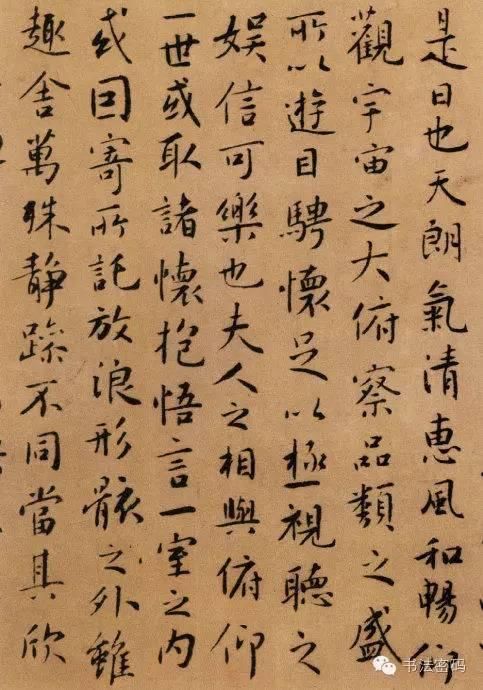 是日也天朗氣清惠風和暢仰
觀宇宙之大俯察品類之盛
所以遊目騁懷足以極視聽之
娱信可樂也夫人之相與俯仰
一世或取諸懷抱悟言一室之内
或因寄所託放浪形骸之外雖
趣舍萬殊静躁不同當其欣
书法密码